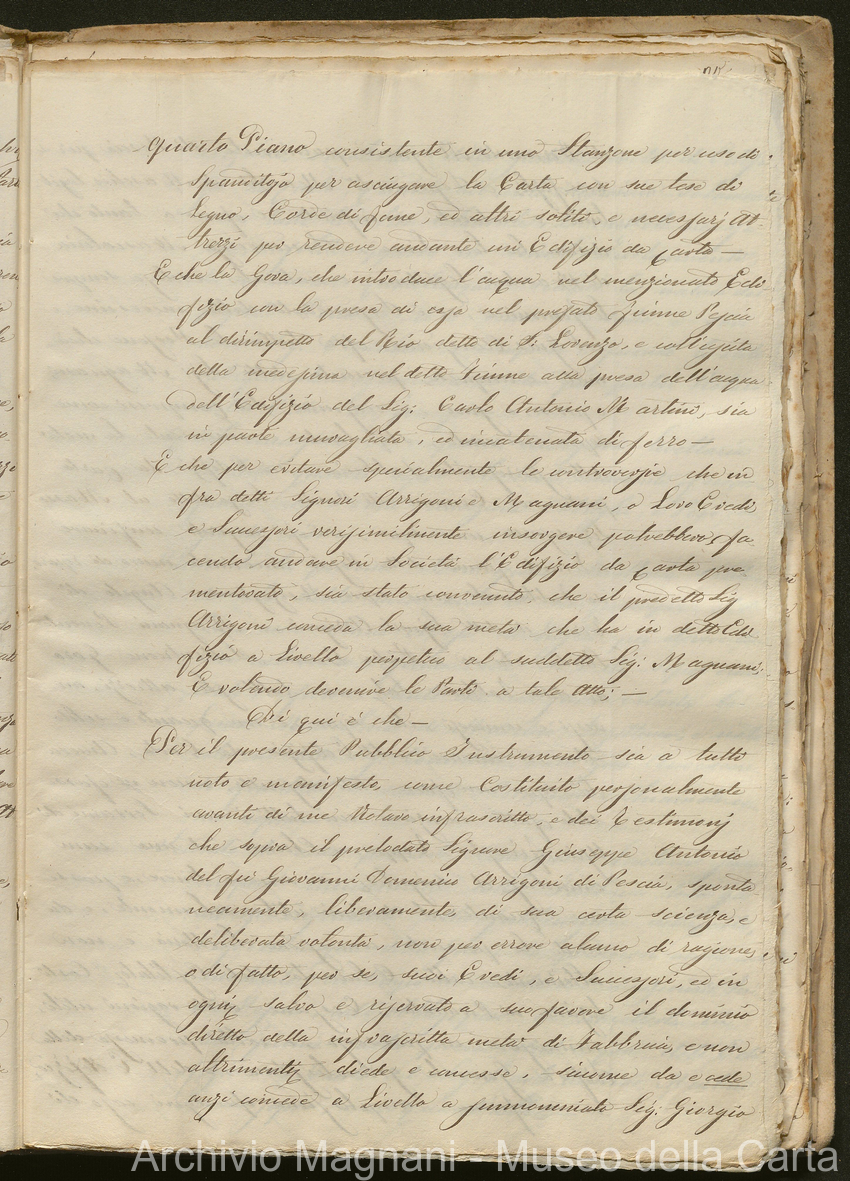 quarto Piano consistente in uno Stanzone per uso di
Spanditojo per asciugare la Carta con sue tese di
Legno, Corde di fune, ed altri soliti, e necessarj At-
trezzi per rendere andante un'Edifizio da carta —
E che la Gora, che introduce l'acqua nel menzionato Edi
fizio con la presa di essa nel prefato fiume Pescia
al dirimpetto del Rio detto di S: Lorenzo, e
della medesima nel detto Fiume alla presa dell'acqua
dell'Edifizio del Sig: Carlo Antonio Martini, sia
in parte muragliata, ed incatenata di ferro —
E che per evitare specialmente le controversie che in
fra detti Signori Arrigoni e Magnani, o Loro Eredi
e Successori verisimilmente insorgere potrebbero, fa
cendo andare in Società l'Edifizio da carta pre
mentovato, sia stato convenuto, che il predetto Sig
Arrigoni conceda la sua metà che ha in detto Edi
fizio a Livello perpetuo al suddetto Sig: Magnani;
E volendo devenire le Parti a tale Atto; —
Di qui è che —
Per il presente Pubblico Instrumento sia a tutti
noto e manifesto, come Costituito personalmente
avanti di me Notaro infrascritto, e dei Testimonj
che sopra il prelodato Signore Giuseppe Antonio
del fù Giovanni Domenico Arrigoni di Pescia, sponta
neamente, liberamente, di sua certa scienza, e
deliberata volontà, non per errore alcuno di ragione,
o di fatto, per se, suoi Eredi, e Successori, ed in
salvo e riservato a suo favore il dominio
diretto della infrascritta metà di Fabbrica, e non
diede e concesse, siccome da e cede
anzi concede a Livello a Sig: Giorgio
Archivio Magnani - Museo della Carta